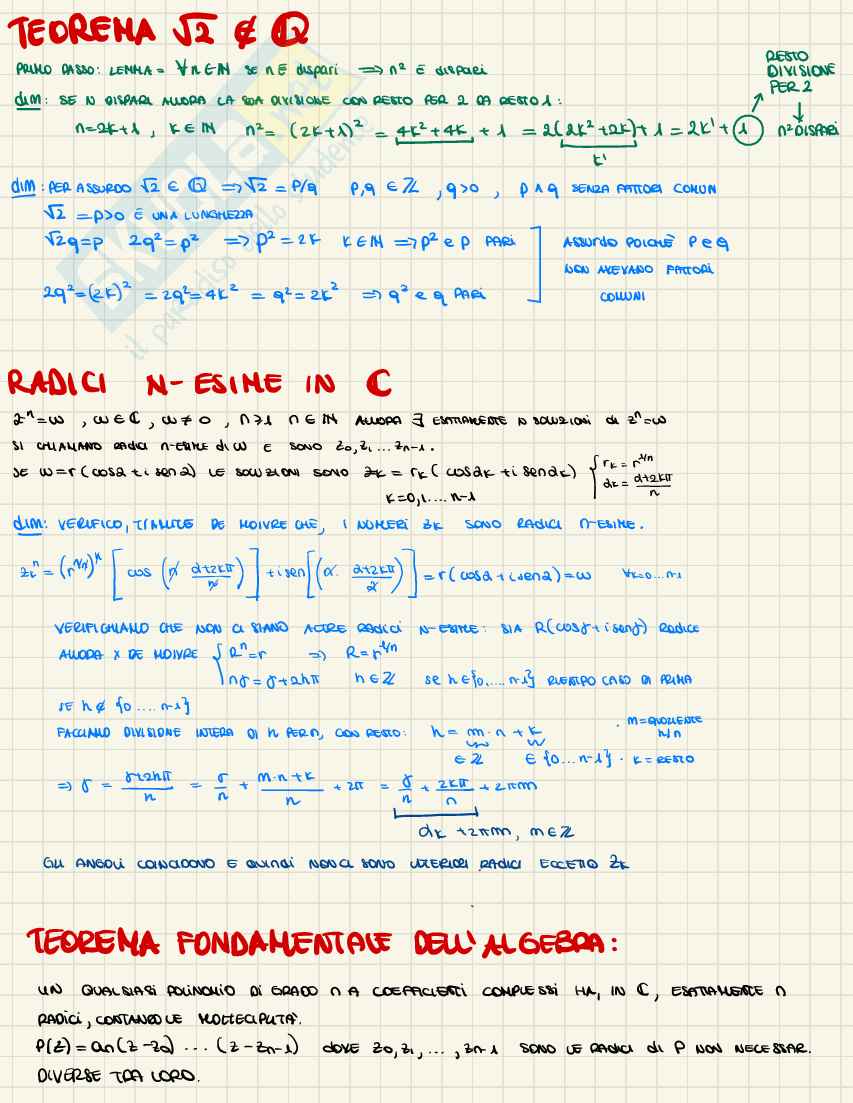 TEOREMA √2 ∉ ℚ
PRIMO PASSO: LEMMA = ∀n∈ℕ se n È dispari ⟹ n² È dispari
dim: SE N DISPARI ALLORA LA SUA DIVISIONE CON RESTO PER 2 DA RESTO 1:
n=2k+1, k∈ℕ n² = (2k+1)² = 4k²+4k + 1 = 2(2k²+2k)+1 = 2k'+1
k'
RESTO
DIVISIONE
PER 2
n² DISPARI
dim: PER ASSURDO √2 ∈ ℚ ⟹ √2 = P/q P,q ∈ ℤ, q>0, p ∧ q SENZA FATTORI COMUN
√2 = p>0 È UNA LUNGHEZZA
√2q=p 2q²=p² ⟹ p²=2k k∈ℕ ⟹ p² e p PARI
2q²=(2k)² = 2q²=4k² = q²=2k² ⟹ q² e q PARI
ASSURDO POICHÈ P e q
NON AVEVANO FATTORI
COMUNI
RADICI N-ESIME IN ℂ
zⁿ=ω, ω∈ℂ, ω≠0, n≥1 n∈ℕ ALLORA ∃ ESATTAMENTE N SOLUZIONI di zⁿ=ω
SI CHIAMANO RADICI n-ESIME di ω E SONO z₀,z₁...zₙ₋₁.
SE ω=r(cosα+i senα) LE SOLUZIONI SONO zₖ = rₖ(cosαₖ+i senαₖ) { rₖ=r^1/n
αₖ= α+2kπ/n
k=0,1....n-1
dim: VERIFICO, TRAMITE DE MOIVRE CHE, I NUMERI zₖ SONO RADICI n-ESIME.
zₖⁿ=(r^1/n)ⁿ [cos (n α+2kπ/n)] + i sen[(n· α+2kπ/n)] = r(cosα+i senα)=ω ∀k=0...n-1
VERIFICHIAMO CHE NON CI SIANO ALTRE RADICI N-ESIME: SIA R(cosγ+i senγ) RADICE
ALLORA x DE MOIVRE { Rⁿ=r ⟹ R=r^1/n
nγ=γ+2hπ h∈ℤ se h∈{0,....n-1} RIENTRO CASO DI PRIMA
SE h∉{0....n-1}
FACCIAMO DIVISIONE INTERA DI h PER n, CON RESTO: h = m·n + k
∈ℤ ∈{0...n-1}
· m=QUOZIENTE
h/n
· k=RESTO
⟹ γ = γ+2hπ/n = γ/n + m·n+k/n + 2π = γ/n + 2kπ/n + 2πm
αₖ +2πm, m∈ℤ
GLI ANGOLI COINCIDONO E QUINDI NON CI SONO ULTERIORI RADICI ECCETTO zₖ
TEOREMA FONDAMENTALE DELL'ALGEBRA:
UN QUALSIASI POLINOMIO DI GRADO n A COEFFICIENTI COMPLESSI HA, IN ℂ, ESATTAMENTE n
RADICI, CONTANDO LE MOLTECIPLITÀ.
P(z)=an(z-z₀) ... (z-zₙ₋₁) DOVE z₀,z₁,...,zₙ₋₁ SONO LE RADICI di P NON NECESSAR.
DIVERSE TRA LORO.